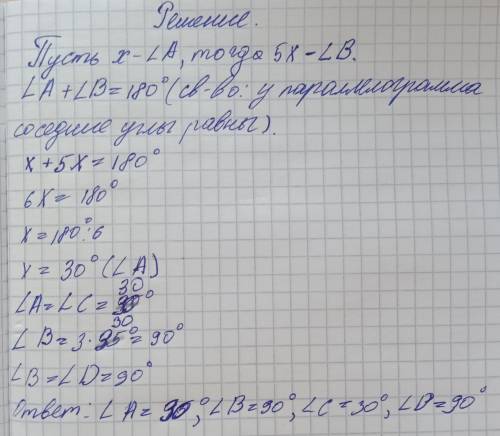 Решение.
Пусть x - ∠A, тогда 5x - ∠B.
∠A + ∠B = 180° (св-во: у параллелограмма
соседние углы равны).
x + 5x = 180°
6x = 180°
x = 180° : 6
x = 30° (∠A)
∠A = ∠C = 30°
∠B = 3 · 30 = 90°
∠B = ∠D = 90°
Ответ: ∠A = 30°, ∠B = 90°, ∠C = 30°, ∠D = 90°